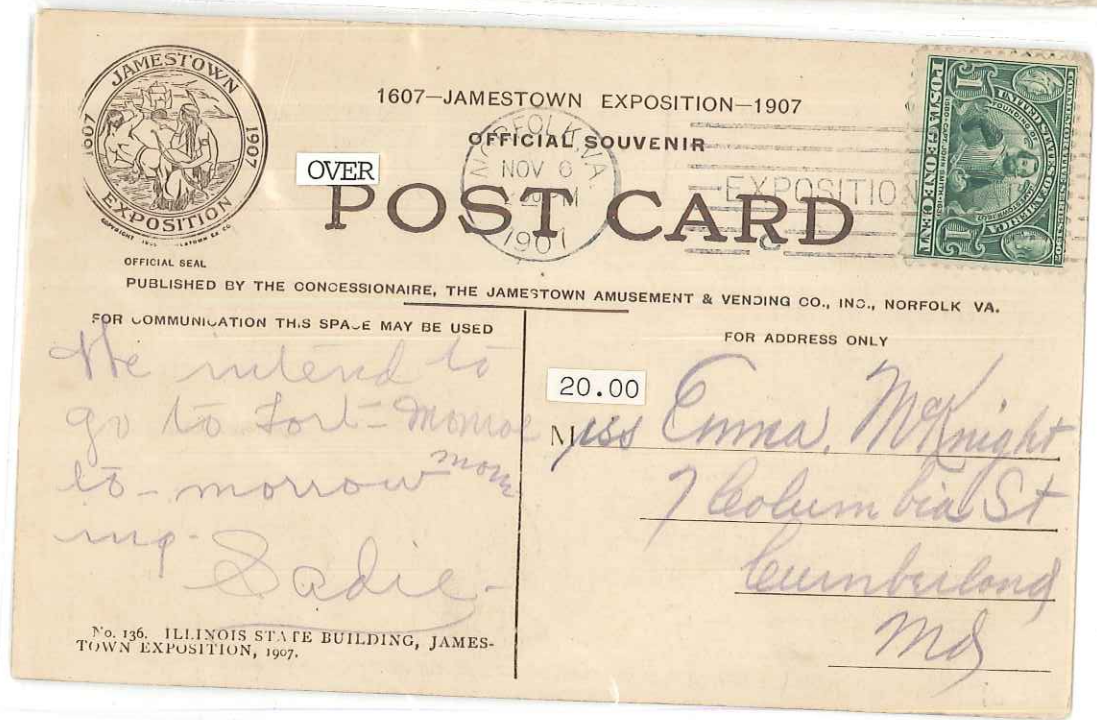 JAMESTOWN
1607 1907
EXPOSITION
OFFICIAL SEAL
1607—JAMESTOWN EXPOSITION—1907
OFFICIAL SOUVENIR
OVER
POST CARD
NORFOLK, VA.
NOV 6
1907
EXPOSITIO
UNITED STATES OF AMERICA
FOUNDER OF
1580-CAPT. JOHN SMITH-1631
POSTAGE ONE CENT
1 1
PUBLISHED BY THE CONCESSIONAIRE, THE JAMESTOWN AMUSEMENT & VENDING CO., INC., NORFOLK VA.
FOR COMMUNICATION THIS SPACE MAY BE USED
We intend to
go to Fort-Monroe
to-morrow morn
ing.
Sadie-
No. 136. ILLINOIS STATE BUILDING, JAMES-
TOWN EXPOSITION, 1907.
FOR ADDRESS ONLY
20.00
Miss Emma McKnight
7 Columbia St
Cumberland
Md